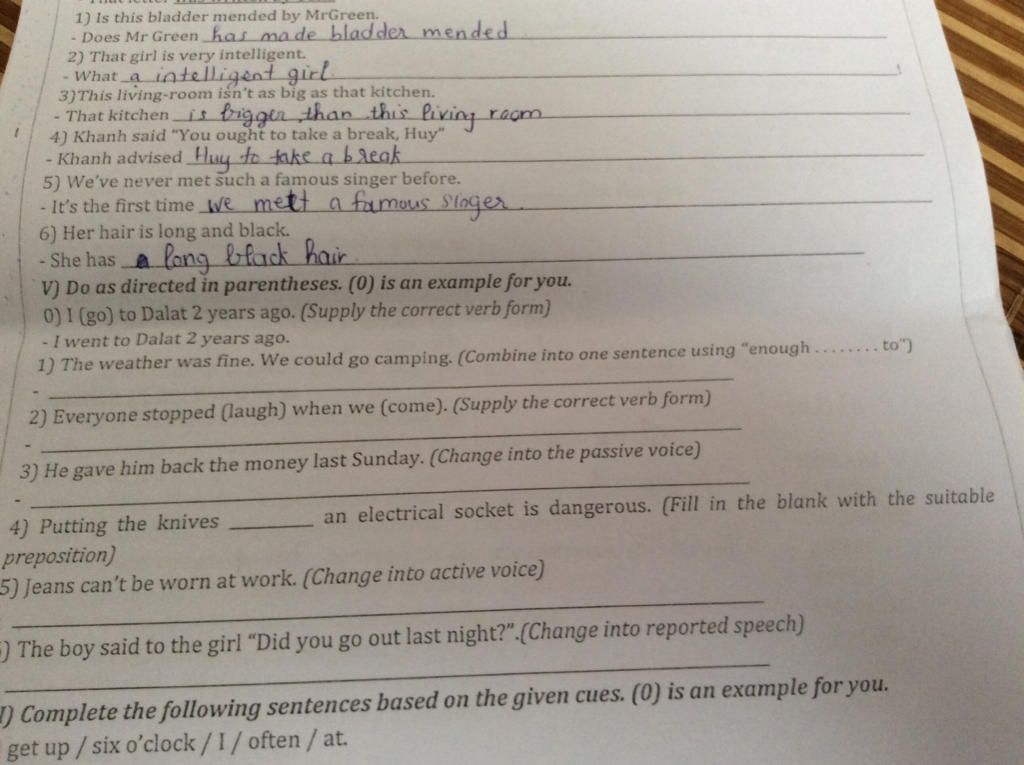 That letter was written by
1) Is this bladder mended by MrGreen.
- Does Mr Green has made bladder mended
2) That girl is very intelligent.
- What a intelligent girl !
3)This living-room isn't as big as that kitchen.
- That kitchen is bigger than this living room
4) Khanh said "You ought to take a break, Huy"
- Khanh advised Huy to take a break
5) We've never met such a famous singer before.
- It's the first time we mett a famous singer.
6) Her hair is long and black.
- She has a long black hair.
V) Do as directed in parentheses. (0) is an example for you.
0) I (go) to Dalat 2 years ago. (Supply the correct verb form)
- I went to Dalat 2 years ago.
1) The weather was fine. We could go camping. (Combine into one sentence using "enough ........ to")
-
2) Everyone stopped (laugh) when we (come). (Supply the correct verb form)
-
3) He gave him back the money last Sunday. (Change into the passive voice)
-
4) Putting the knives ________ an electrical socket is dangerous. (Fill in the blank with the suitable
preposition)
5) Jeans can't be worn at work. (Change into active voice)
) The boy said to the girl "Did you go out last night?".(Change into reported speech)
I) Complete the following sentences based on the given cues. (0) is an example for you.
get up / six o'clock / I / often / at.